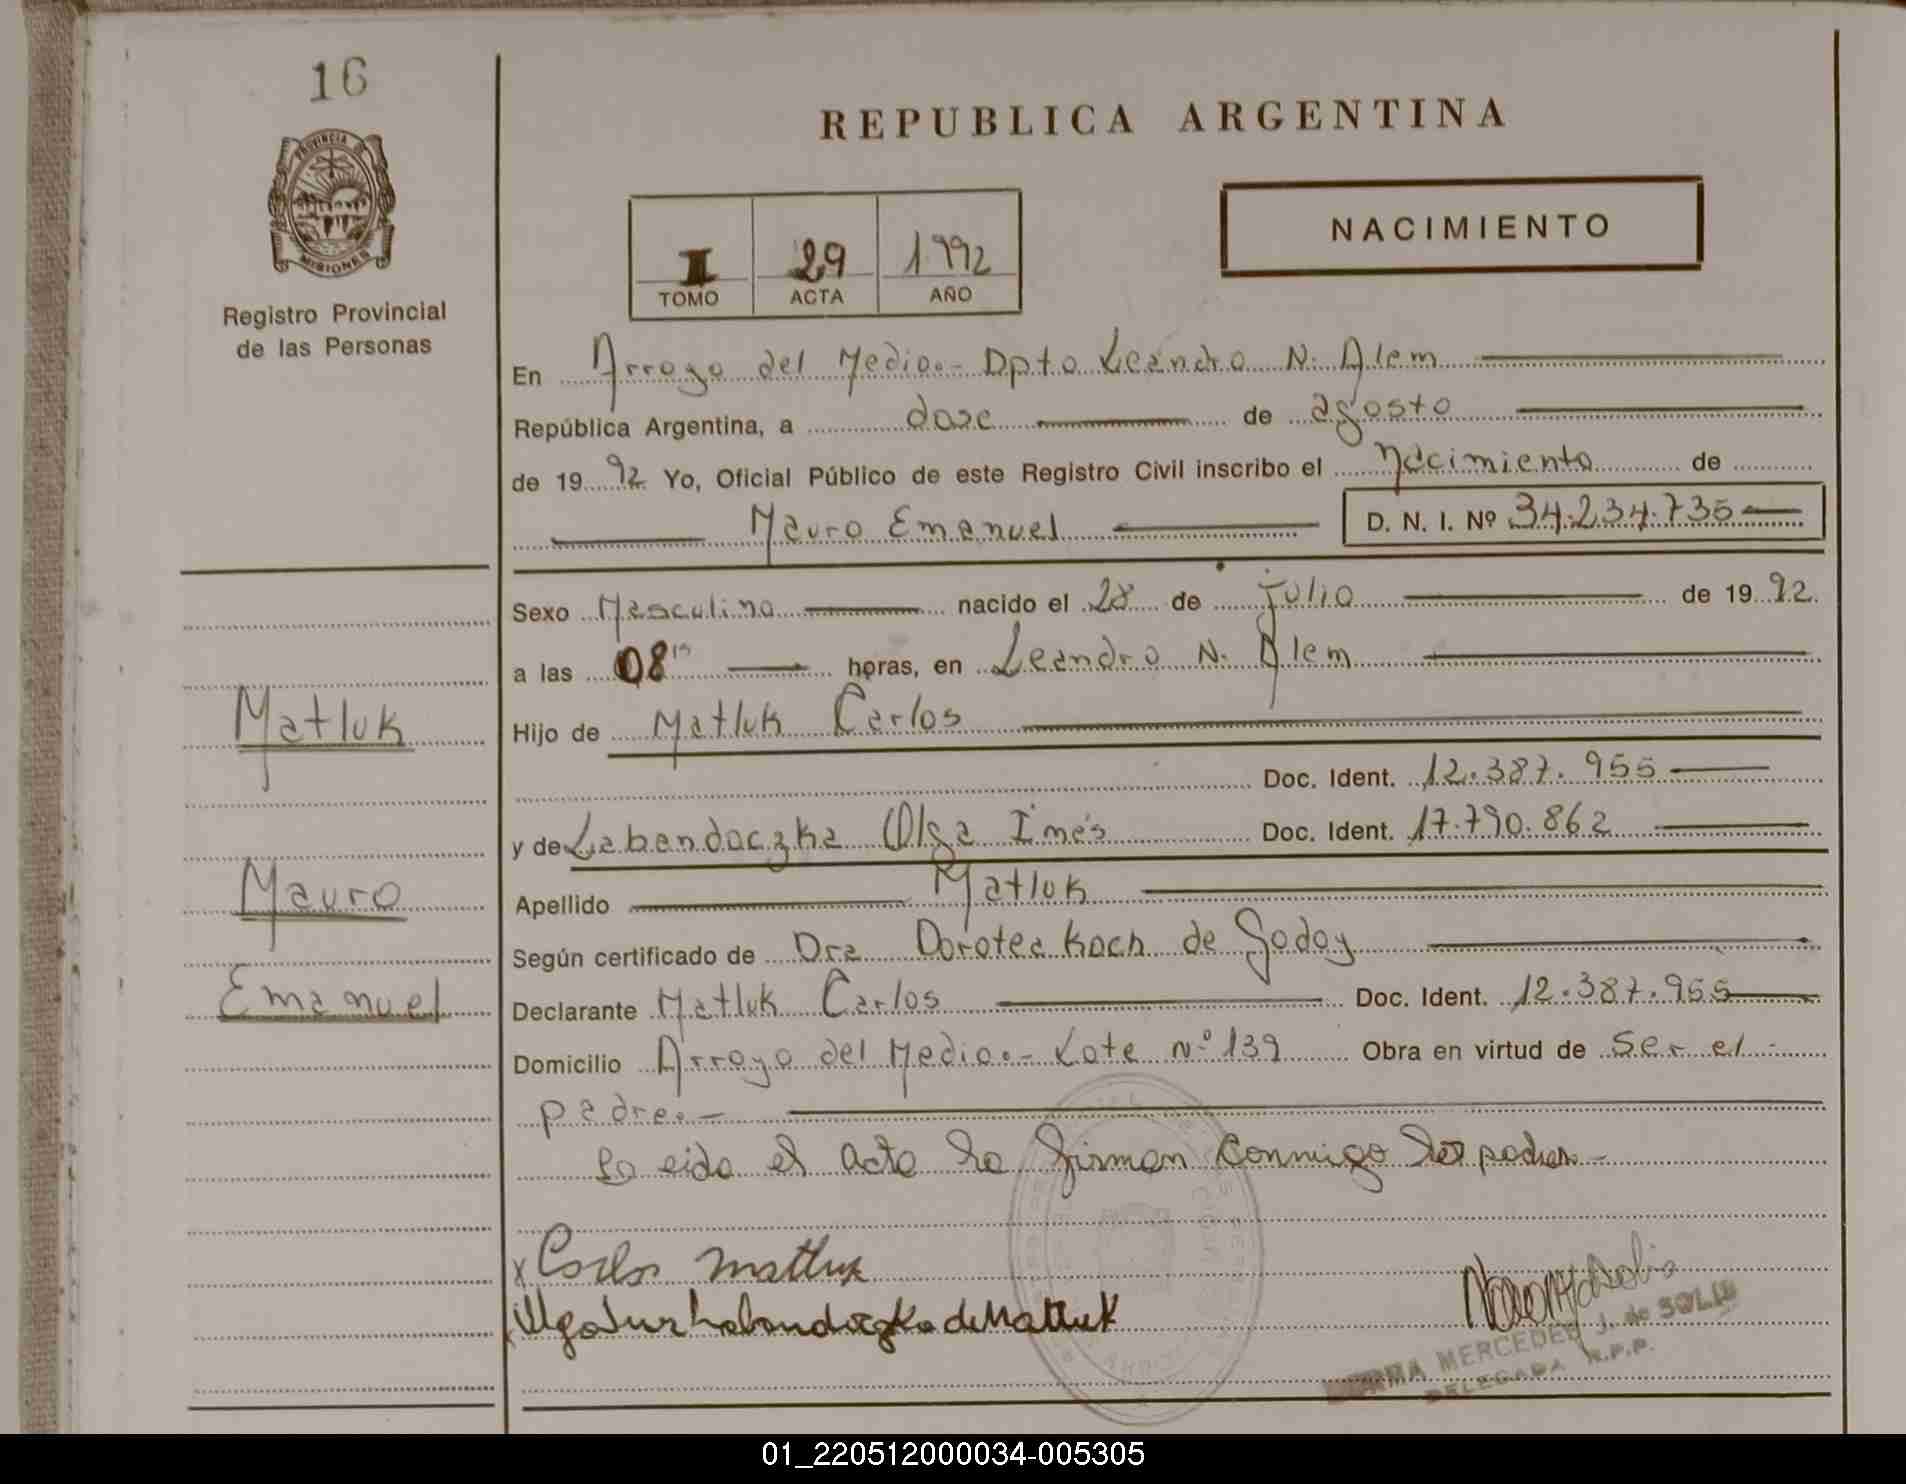 16
PROVINCIA DE
MISIONES
Registro Provincial
de las Personas
Matluk
Mauro
Emanuel
REPUBLICA ARGENTINA
NACIMIENTO
I 29 1992
TOMO ACTA AÑO
En Arroyo del Medio.- Dpto Leandro N. Alem
República Argentina, a dose de agosto
de 1992 Yo, Oficial Público de este Registro Civil inscribo el Nacimiento de
Mauro Emanuel D. N. I. Nº 34.234.735
Sexo Masculino nacido el 28 de julio de 1992
a las 08 horas, en Leandro N. Alem
Hijo de Matluk Carlos
Doc. Ident. 12.387.955
y de Labandoczka Olga Inés Doc. Ident. 17.790.862
Apellido Matluk
Según certificado de Dra Dorotea Koch de Godoy
Declarante Matluk Carlos Doc. Ident. 12.387.955
Domicilio Arroyo del Medio.- Lote Nº 139 Obra en virtud de ser el
padre.-
Leida el acta la firman conmigo los padres-
x Carlos Matluk
Labandoczka de Matluk
MERCEDES J. de SOLIS
DELEGADA R.P.P.
01_220512000034-005305